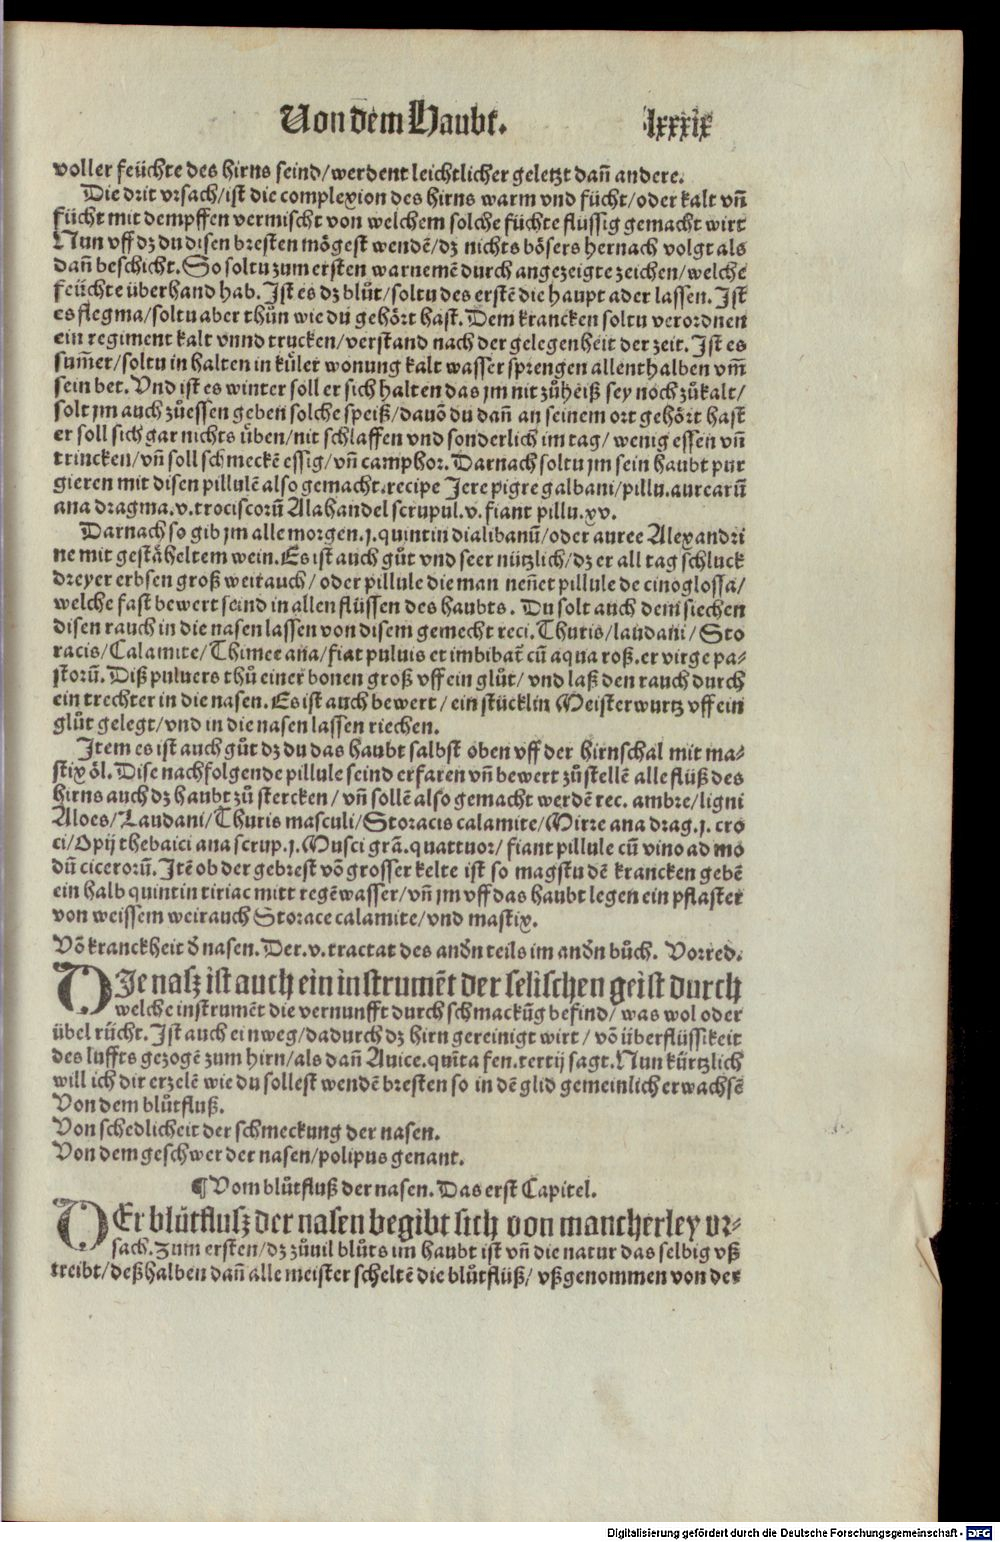 Von dem Haubt. lxxxix
voller feüchte des hirns seind/werdent leichtlicher geletzt dañ andere.
Die drit vrsach/ist die complexion des hirns warm vnd fücht/oder kalt vñ
fücht mit dempffen vermischt von welchem solche füchte flüssig gemacht wirt
Nun vff dz du disen bresten mögest wendē/dz nichts bösers hernach volgt als
dañ beschicht. So soltu zum ersten warnemē durch angezeigte zeichen/welche
feüchte überhand hab. Ist es dz blůt/soltu des erstē die haupt ader lassen. Ist
es flegma/soltu aber thůn wie du gehört hast. Dem krancken soltu verordnen
ein regiment kalt vnnd trucken/verstand nach der gelegenheit der zeit. Ist es
sum̄er/soltu in halten in küler wonung kalt wasser sprengen allenthalben vm̄
sein bet. Vnd ist es winter soll er sich halten das jm nit zů heiß sey noch zů kalt/
solt jm auch zů essen geben solche speiß/dauō du dañ an seinem ort gehört hast
er soll sich gar nichts üben/nit schlaffen vnd sonderlich im tag/ wenig essen vñ
trincken/vñ soll schmeckē essig/vñ camphor. Darnach soltu jm sein haubt pur
gieren mit disen pillulē also gemacht.recipe Jere pigre galbani/pillu.aurearū
ana dragma.v.trociscorū Alahandel scrupul.v.fiant pillu.xv.
Darnach so gib jm alle morgen.j.quintin dialibanū/oder auree Alexandri
ne mit gestäheltem wein. Es ist auch gůt vnd seer nützlich/dz er all tag schluck
dreyer erbsen groß weirauch/ oder pillule die man neñet pillule de cinoglossa/
welche fast bewert seind in allen flüssen des haubts. Du solt auch dem siechen
disen rauch in die nasen lassen von disem gemecht reci. Thuris/laudani/ Sto
racis/Calamite/Thimee ana/fiat puluis et imbibat̄ cū aqua roß.er virge pa-
storū. Diß puluers thů einer bonen groß vff ein glůt/ vnd laß den rauch durch
ein trechter in die nasen. Es ist auch bewert/ ein stücklin Meisterwurtz vff ein
glůt gelegt/vnd in die nasen lassen riechen.
Item es ist auch gůt dz du das haubt salbst oben vff der hirnschal mit ma-
stix öl. Dise nachfolgende pillule seind erfaren vñ bewert zů stellē alle flüß des
hirns auch dz haubt zů stercken/ vñ sollē also gemacht werdē rec. ambre/ligni
Aloes/Laudani/Thuris masculi/Storacis calamite/Mirre ana drag.j. cro
ci/Opij thebaici ana scrup.j.Musci grā.quattuor/ fiant pillule cū vino ad mo
dū cicerorū. Itē ob der gebrest vō grosser kelte ist so magstu dē krancken gebē
ein halb quintin tiriac mitt regēwasser/vñ jm vff das haubt legen ein pflaster
von weissem weirauch Storace calamite/vnd mastix.
Vō kranckheit d' nasen. Der.v.tractat des and'n teils im and'n bůch. Vorred.
DIe nasz ist auch ein instrumēt der selischen geist durch
welche instrumēt die vernunfft durch schmackūg befind/ was wol oder
übel rücht. Ist auch ein weg/dadurch dz hirn gereinigt wirt/ vō überflüssikeit
des luffts gezogē zum hirn/als dañ Auice.quīta fen.tertij sagt. Nun kürtzlich
will ich dir erzelē wie du sollest wendē bresten so in dē glid gemeinlich erwachsē
Von dem blůtfluß.
Von schedlicheit der schmeckung der nasen.
Von dem geschwer der nasen/polipus genant.
¶ Vom blůtfluß der nasen. Das erst Capitel.
DEr blůtflusz der nasen begibt sich von mancherley vr-
sach. Zum ersten/dz zůuil blůts im haubt ist vñ die natur das selbig vß
treibt/deßhalben dañ alle meister scheltē die blůtflüß/ vßgenommen von der
Digitalisierung gefördert durch die Deutsche Forschungsgemeinschaft - DFG